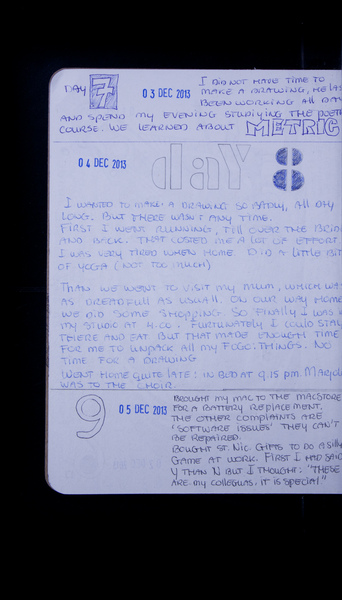 DAY 7
03 DEC 2013
I DID NOT HAVE TIME TO
MAKE A DRAWING,
BEEN WORKING ALL DAY
AND SPEND MY EVENING STUDIYING THE
COURSE. WE LEARNED ABOUT METRIC
04 DEC 2013
day 8
I WANTED TO MAKE A DRAWING SO BADLY, ALL DAY
LONG. BUT THERE WASN'T ANY TIME.
FIRST I WENT RUNNING, TILL OVER THE
AND BACK. THAT COSTED ME A LOT OF EFFORT
I WAS VERY TIRED WHEN HOME. DID A LITTLE BIT
OF YOGA (NOT TOO MUCH)
THAN WE WENT TO VISIT MY MUM, WHICH WAS
AS DREADFULL AS USUAL. ON OUR WAY HOME
WE DID SOME SHOPPING. SO FINALLY I WAS
MY STUDIO AT 4.00. FURTUNATELY I COULD STAY
THERE AND EAT BUT THAT MADE ENOUGH TIME
FOR ME TO UNPACK ALL MY THINGS. NO
TIME FOR A DRAWING
WENT HOME QUITE LATE: IN BED AT 9.15 PM
WAS TO THE CHOIR.
9
05 DEC 2013
BROUGHT MY MAC TO THE MACSTORE
FOR A BATTERY REPLACEMENT.
THE OTHER COMPLAINTS ARE
'SOFTWARE ISSUES' THEY CAN'T
BE REPAIRED.
BOUGHT ST. NIC GIFTS TO DO A SILLY
GAME AT WORK. FIRST I HAD SAID
Y THAN N BUT I THOUGHT: "THESE
ARE MY COLLEGUAS, IT IS SPECIAL"